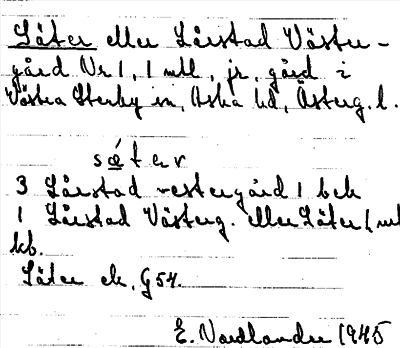 Säter eller Lårstad Väster-
gård Nr 1, 1 mtl, jr, gård i
Västra Stenby sn, Aska hd, Österg. l.
sǽtər
3 Lårstad vestergård 1 bek
1 Lårstad Västerg. eller Säter (ut
kb.
Säter ek, G54.
E. Nordlander 1945